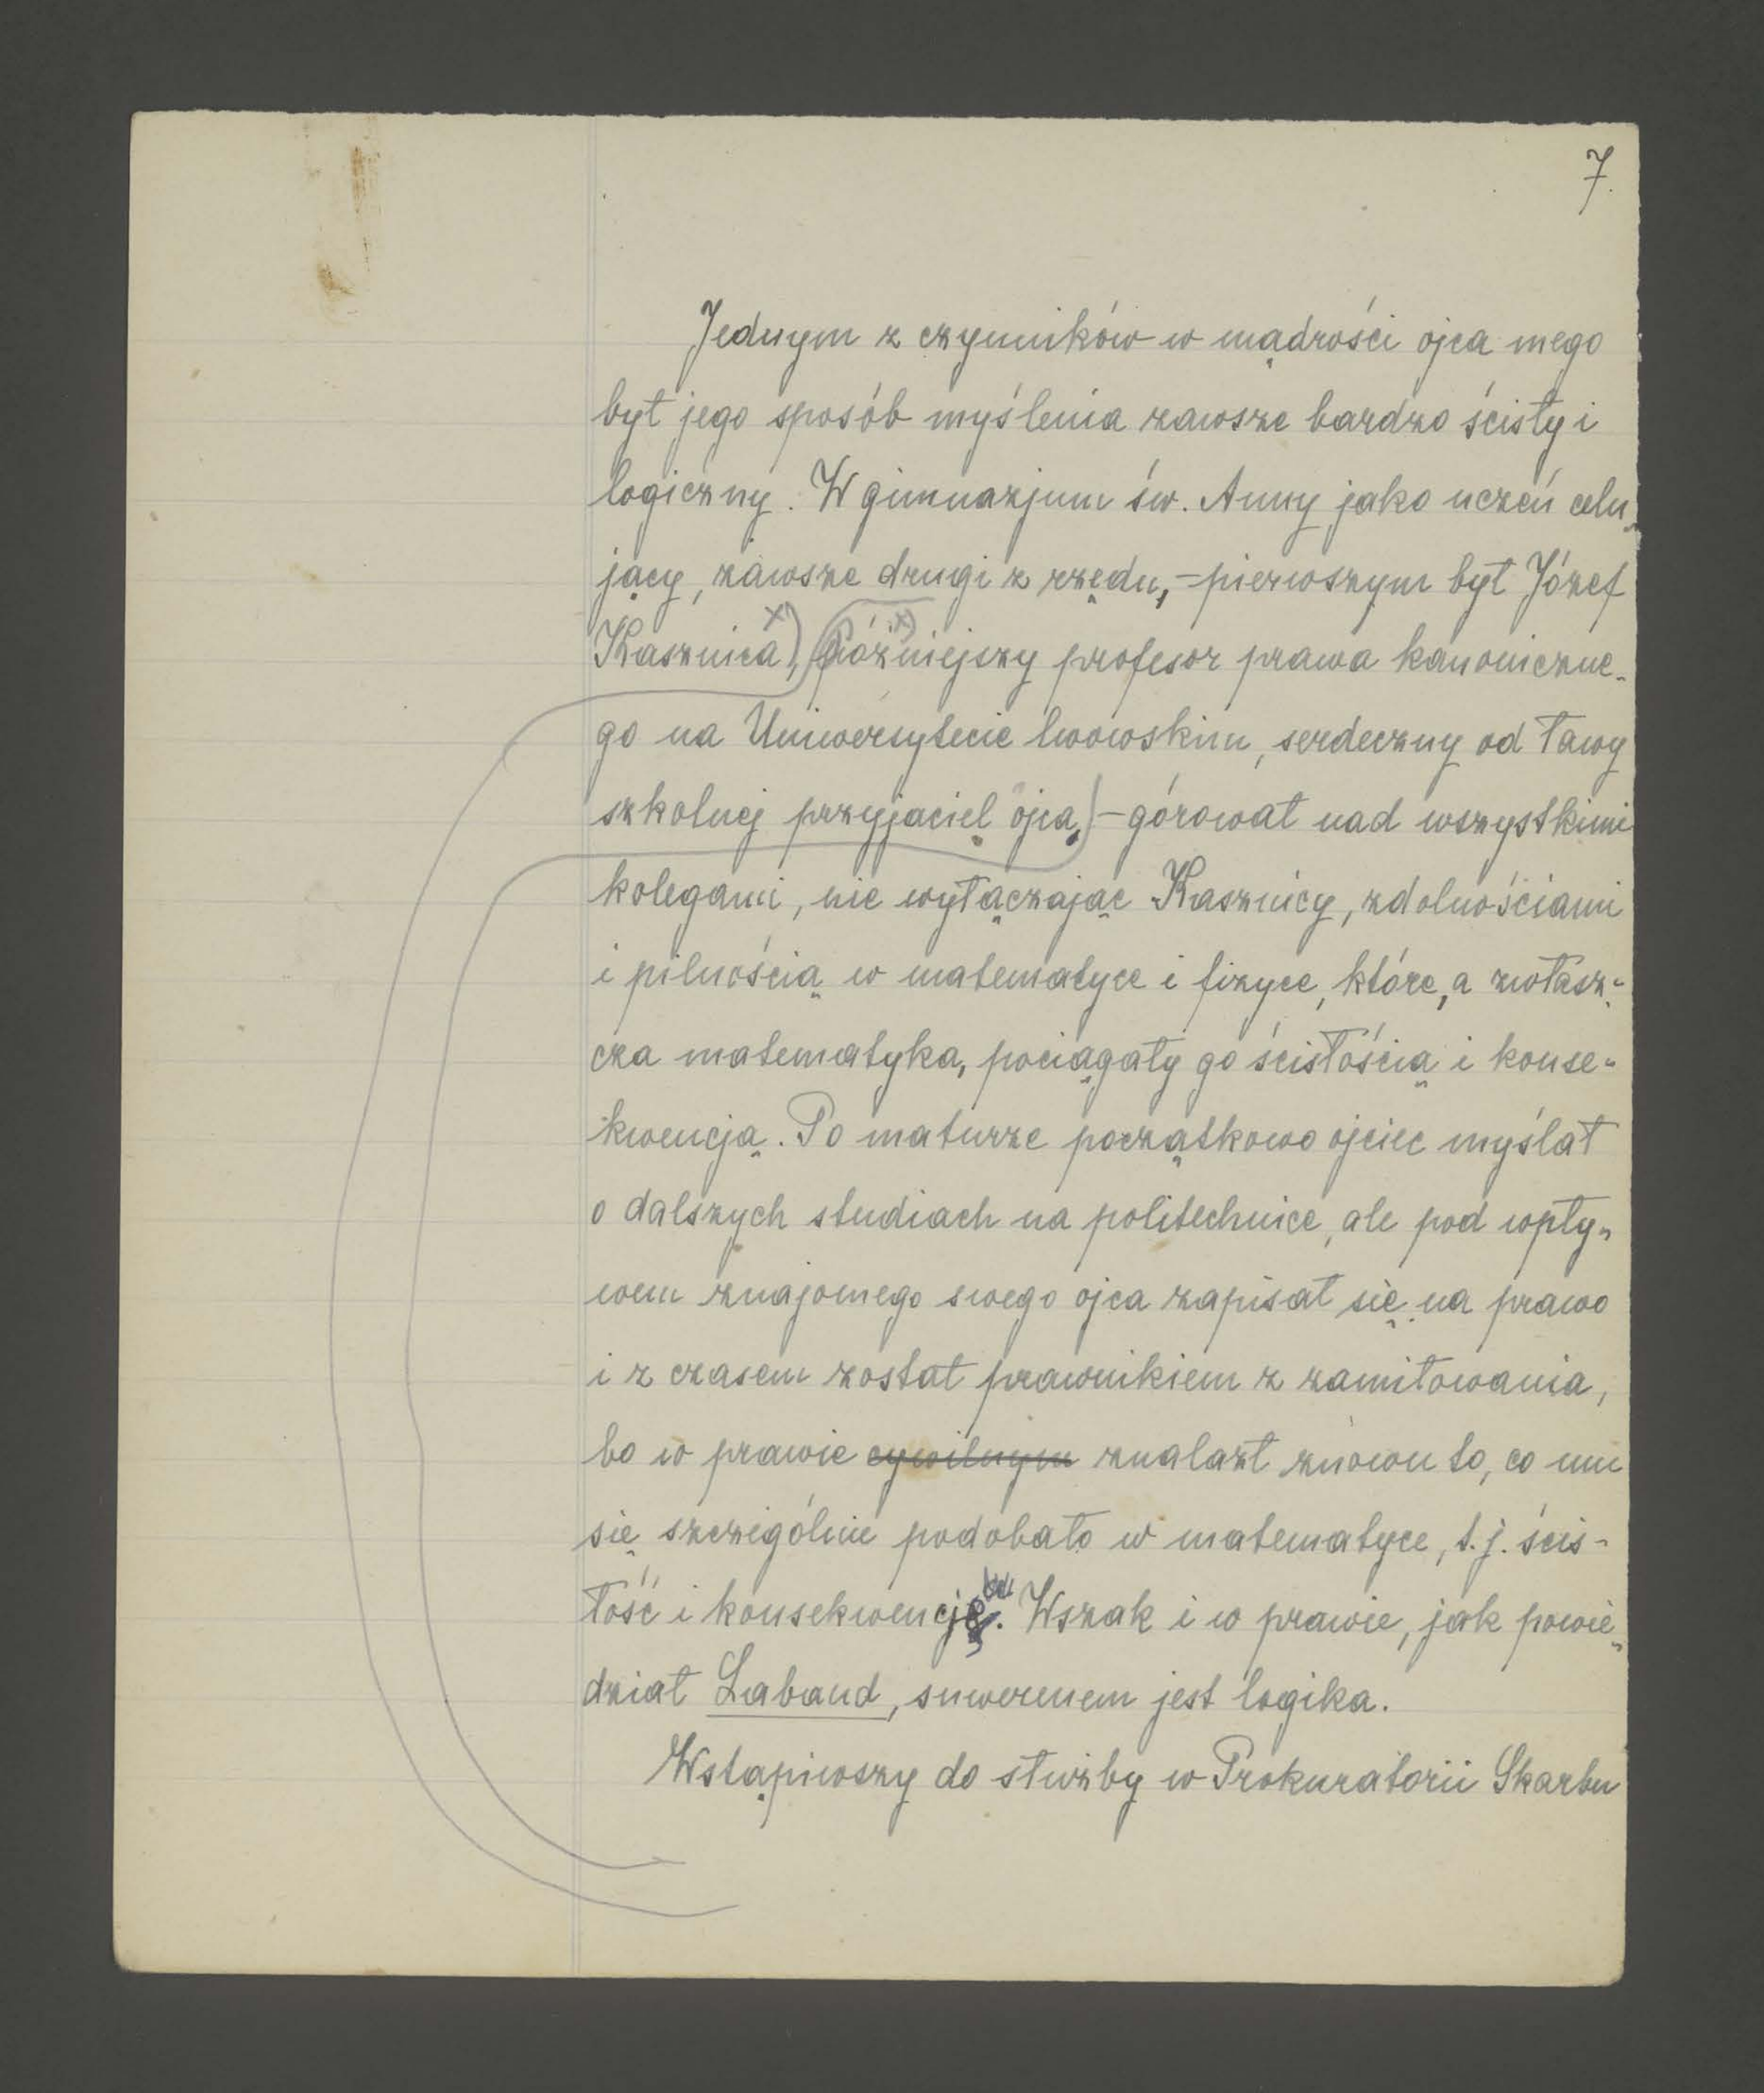 7.
Jednym z czynników w mądrości ojca mego
był jego sposób myślenia zawsze bardzo ścisły i
logiczny. W gimnazjum św. Anny jako uczeń celu-
jący, zawsze drugi z rzędu, - pierwszym był Józef
Kasznica x), późniejszy profesor prawa kanoniczne-
go na Uniwersytecie lwowskim, serdeczny od ławy
szkolnej przyjaciel ojca, - górował nad wszystkimi
kolegami, nie wyłączając Kasznicy, zdolnościami
i pilnością w matematyce i fizyce, które, a zwłasz-
cza matematyka, pociągały go ścisłością i konse-
kwencją. Po maturze początkowo ojciec myślał
o dalszych studiach na politechnice, ale pod wpły-
wem znajomego swego ojca zapisał się na prawo
i z czasem został prawnikiem z zamiłowania,
bo w prawie cywilnym znalazł znowu to, co mu
się szczególnie podobało w matematyce, t.j. ścis-
łość i konsekwencję. Wszak i w prawie, jak powie-
dział Laband, suwerenem jest logika.
Wstąpiwszy do służby w Prokuratorii Skarbu